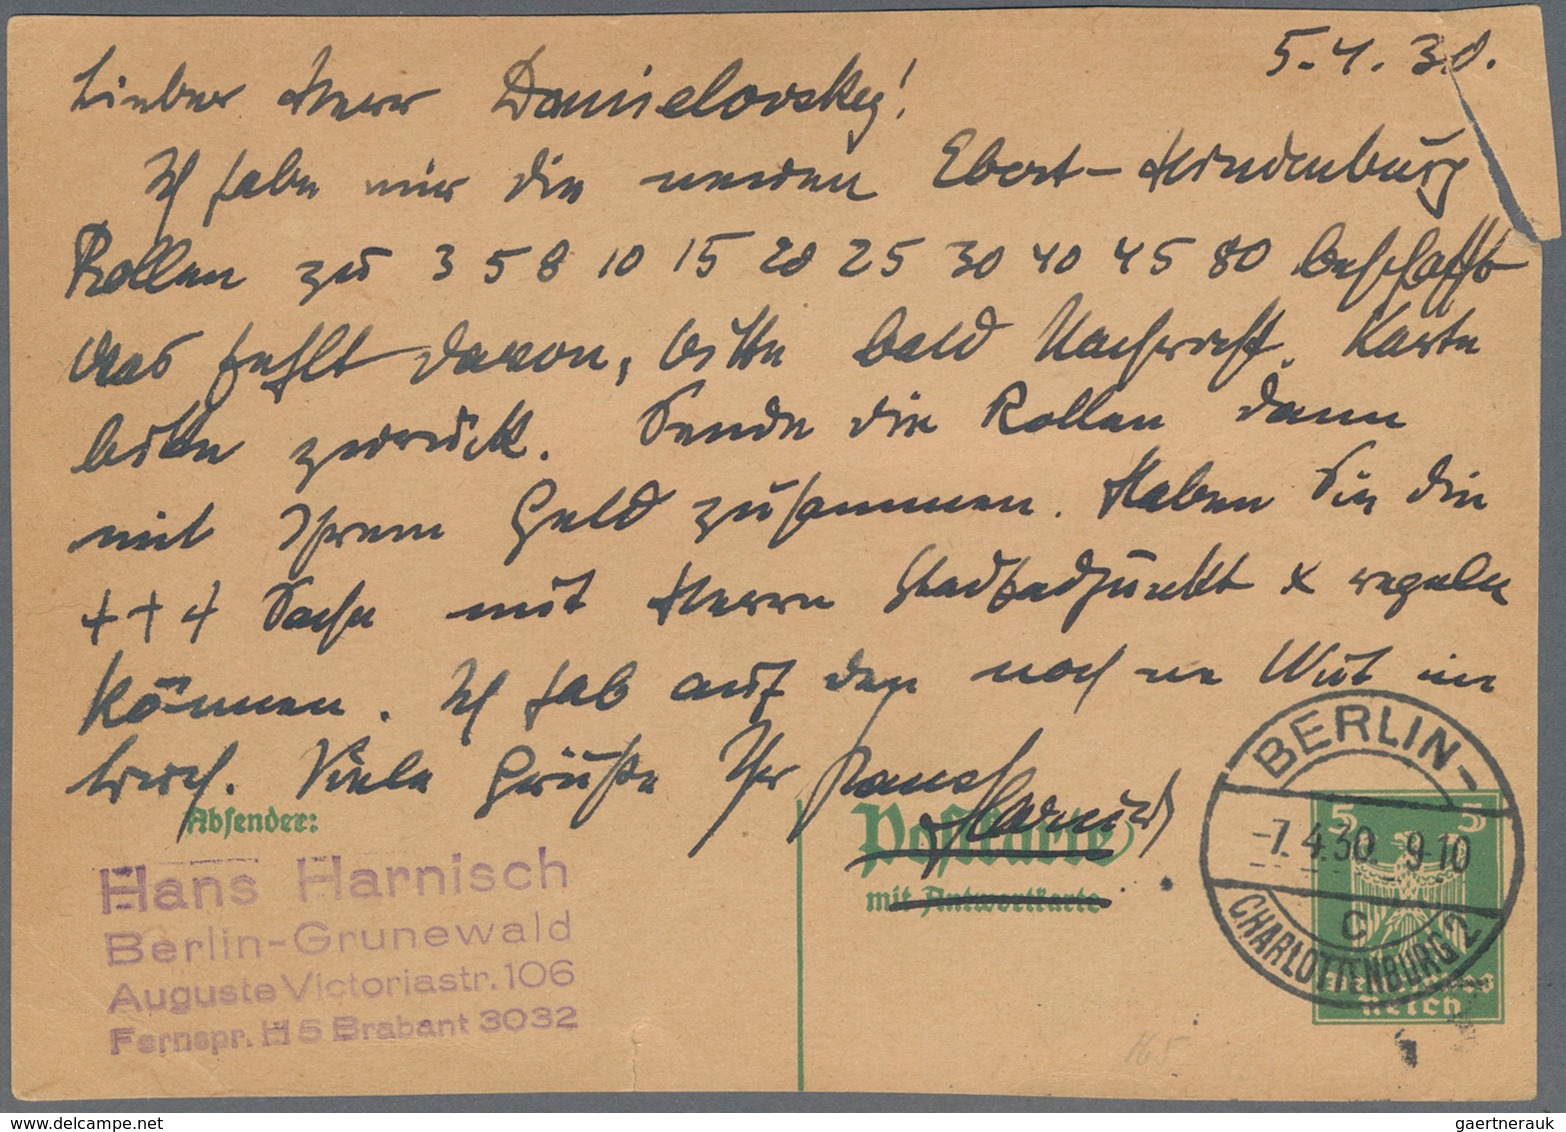 5.4.30.
Lieber Herr Danielovsky!
Ich habe mir die neuen Ebert-Hindenburg
Rollen zu 3 5 8 10 15 20 25 30 40 45 80 beschafft
was fehlt davon, bitte bald Nachricht. Karte
bitte zurück. Sende die Rollen dann
mit Ihrem Geld zusammen. Haben Sie die
+++ Sache mit Herrn Stadtadjunkt x regeln
können. Ich hab auf den noch ne Wut im
Viele Grüße Ihr Hans
Harnisch
Absender:
Postkarte
mit Antwortkarte
Hans Harnisch
Berlin-Grunewald
Auguste Victoriastr. 106
Fernspr. H 5 Brabant 3032
BERLIN-
-7.4.30. 9-10
C
CHARLOTTENBURG 2
5 5
Deutsches
Reich
gaertnerauk // delcampe.net